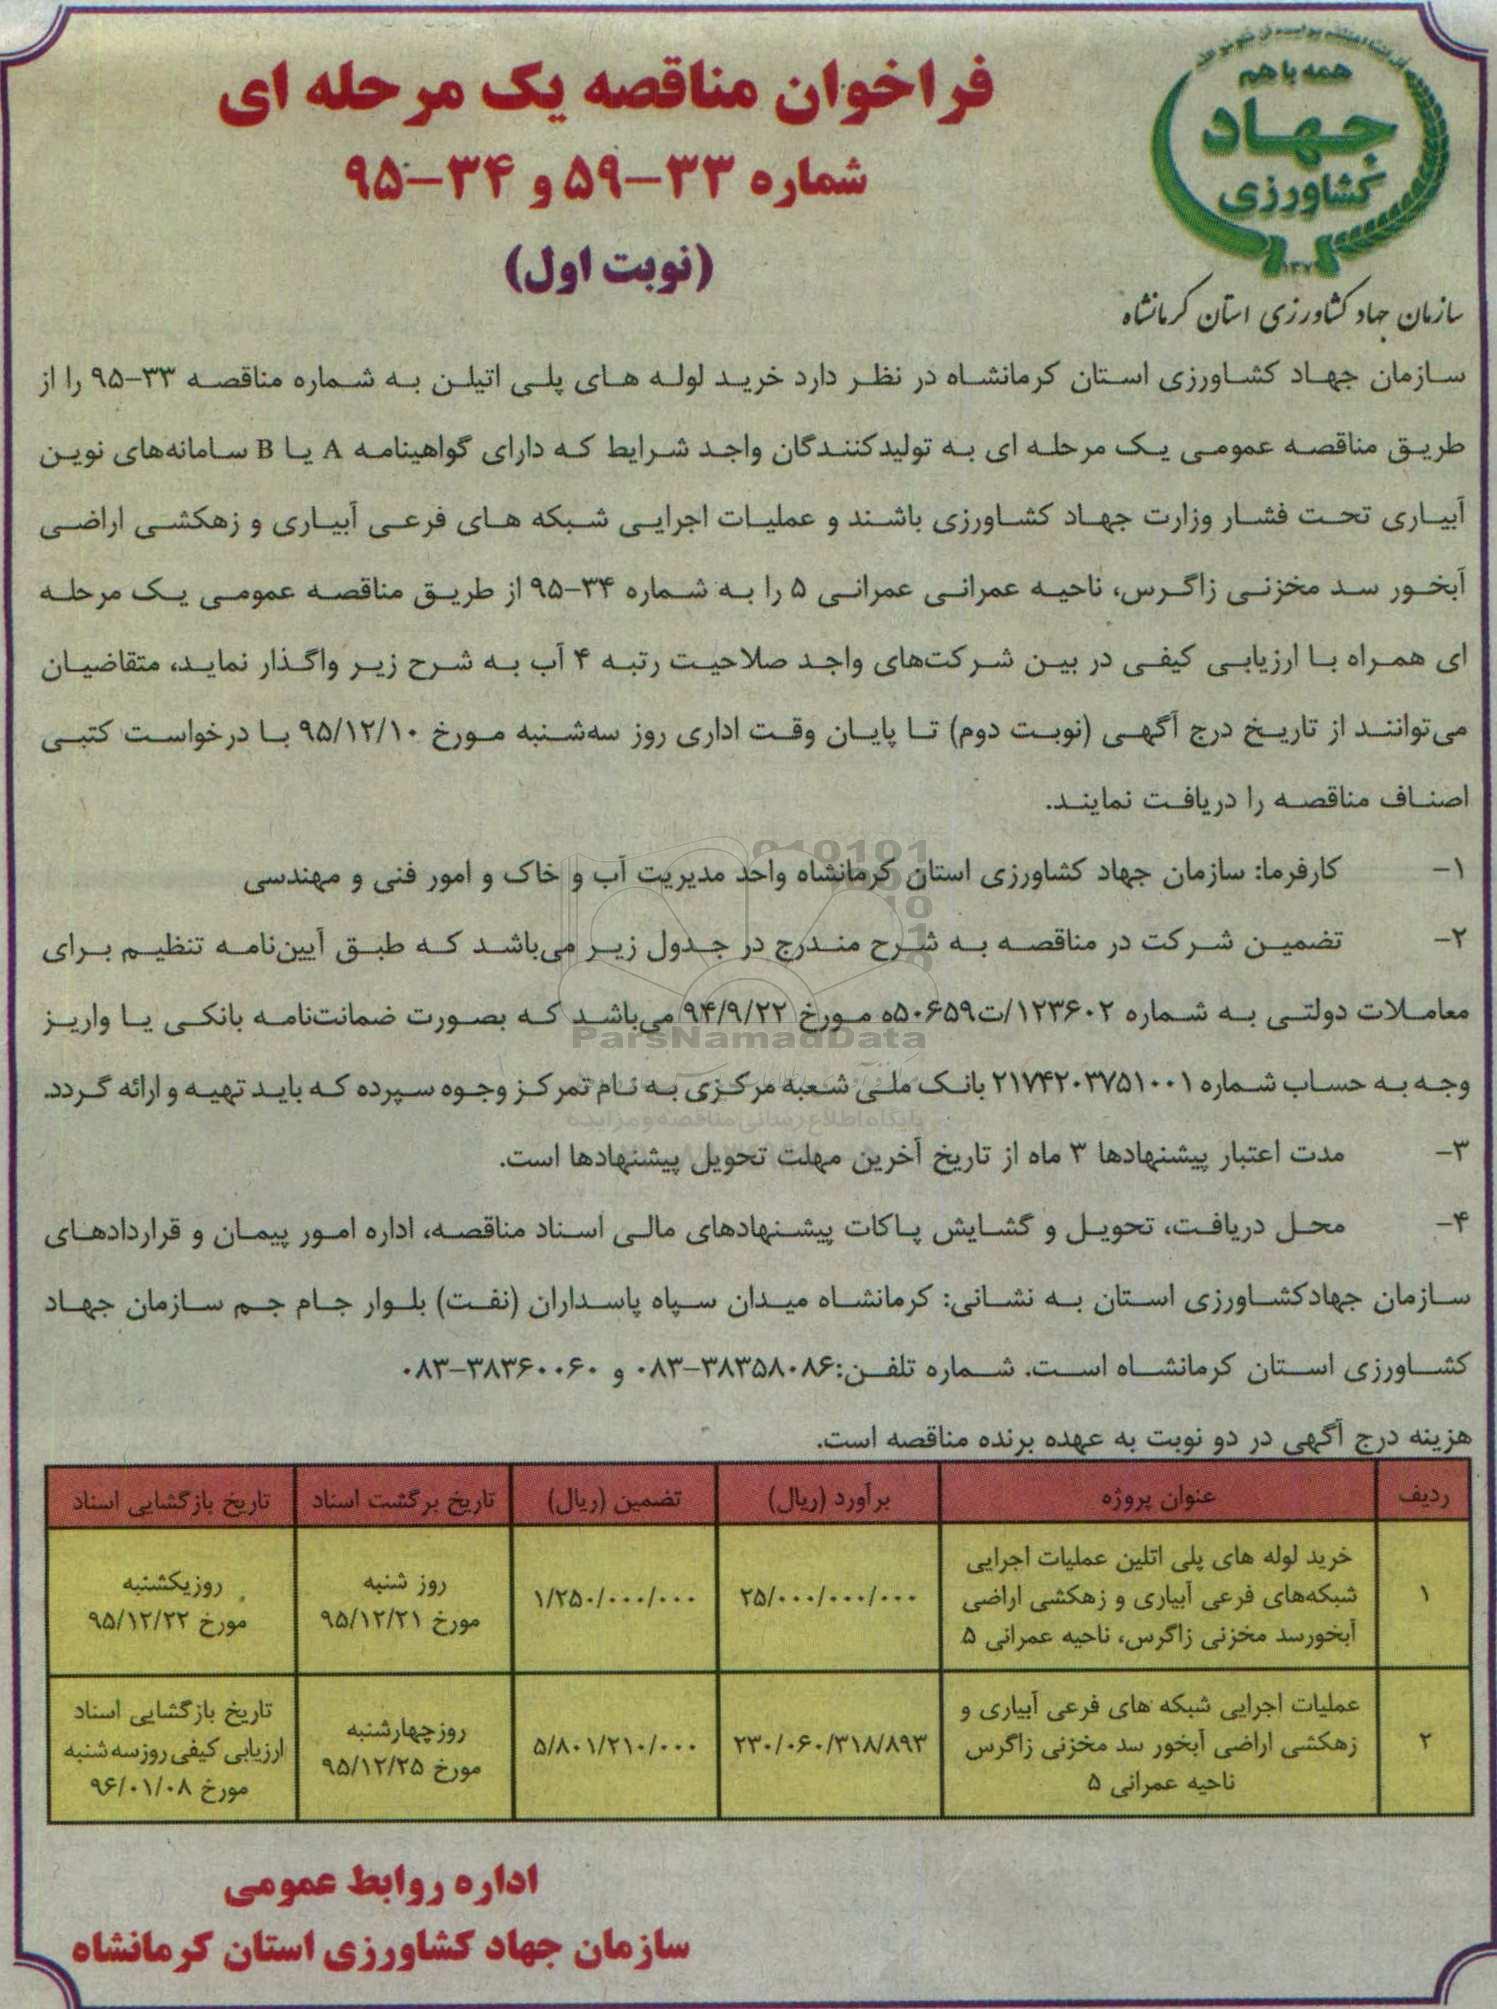 همه با هم
جهاد
کشاورزی
سازمان جهاد کشاورزی استان کرمانشاه
فراخوان مناقصه یک مرحله ای
شماره ۳۳-۵۹ و ۳۴-۹۵
(نوبت اول)
سازمان جهاد کشاورزی استان کرمانشاه در نظر دارد خرید لوله های پلی اتیلن به شماره مناقصه ۳۳-۹۵ را از
طریق مناقصه عمومی یک مرحله ای به تولیدکنندگان واجد شرایط که دارای گواهینامه A یا B سامانه‌های نوین
آبیاری تحت فشار وزارت جهاد کشاورزی باشند و عملیات اجرایی شبکه های فرعی آبیاری و زهکشی اراضی
آبخور سد مخزنی زاگرس، ناحیه عمرانی عمرانی ۵ را به شماره ۳۴-۹۵ از طریق مناقصه عمومی یک مرحله
ای همراه با ارزیابی کیفی در بین شرکت‌های واجد صلاحیت رتبه ۴ آب به شرح زیر واگذار نماید، متقاضیان
می‌توانند از تاریخ درج آگهی (نوبت دوم) تا پایان وقت اداری روز سه‌شنبه مورخ ۹۵/۱۲/۱۰ با درخواست کتبی
اصناف مناقصه را دریافت نمایند.
۱- کارفرما: سازمان جهاد کشاورزی استان کرمانشاه واحد مدیریت آب و خاک و امور فنی و مهندسی
۲- تضمین شرکت در مناقصه به شرح مندرج در جدول زیر می‌باشد که طبق آیین‌نامه تنظیم برای
معاملات دولتی به شماره ۱۲۳۶۰۲/ت۵۰۶۵۹ه مورخ ۹۴/۹/۲۲ می‌باشد که بصورت ضمانت‌نامه بانکی یا واریز
وجه به حساب شماره ۲۱۷۴۲۰۳۷۵۱۰۰۱ بانک ملی شعبه مرکزی به نام تمرکز وجوه سپرده که باید تهیه و ارائه گردد.
۳- مدت اعتبار پیشنهادها ۳ ماه از تاریخ آخرین مهلت تحویل پیشنهادها است.
۴- محل دریافت، تحویل و گشایش پاکات پیشنهادهای مالی اسناد مناقصه، اداره امور پیمان و قراردادهای
سازمان جهادکشاورزی استان به نشانی: کرمانشاه میدان سپاه پاسداران (نفت) بلوار جام جم سازمان جهاد
کشاورزی استان کرمانشاه است. شماره تلفن:۳۸۳۵۸۰۸۶-۰۸۳ و ۳۸۳۶۰۰۶۰-۰۸۳
هزینه درج آگهی در دو نوبت به عهده برنده مناقصه است.
ردیف عنوان پروژه برآورد (ریال) تضمین (ریال) تاریخ برگشت اسناد تاریخ بازگشایی اسناد
۱
خرید لوله های پلی اتلین عملیات اجرایی
شبکه‌های فرعی آبیاری و زهکشی اراضی
آبخورسد مخزنی زاگرس، ناحیه عمرانی ۵
۲۵/۰۰۰/۰۰۰/۰۰۰
۱/۲۵۰/۰۰۰/۰۰۰
روز شنبه
مورخ ۹۵/۱۲/۲۱
روزیکشنبه
مورخ ۹۵/۱۲/۲۲
۲
عملیات اجرایی شبکه های فرعی آبیاری و
زهکشی اراضی آبخور سد مخزنی زاگرس
ناحیه عمرانی ۵
۲۳۰/۰۶۰/۳۱۸/۸۹۳
۵/۸۰۱/۲۱۰/۰۰۰
روزچهارشنبه
مورخ ۹۵/۱۲/۲۵
تاریخ بازگشایی اسناد
ارزیابی کیفی روزسه شنبه
مورخ ۹۶/۰۱/۰۸
اداره روابط عمومی
سازمان جهاد کشاورزی استان کرمانشاه
ParsNamadData
پایگاه اطلاع رسانی مناقصه و مزایده